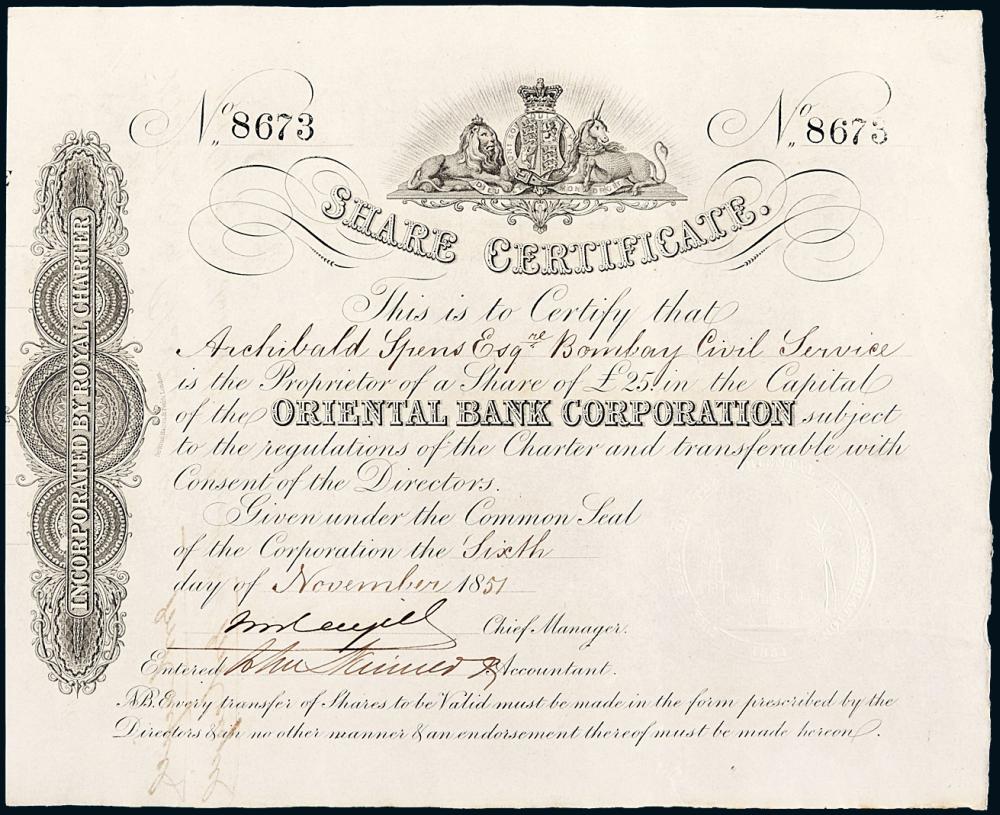 No 8673
No 8673
DIEU ET MON DROIT
SHARE CERTIFICATE.
INCORPORATED BY ROYAL CHARTER
This is to Certify that
Archibald Spens Esqre Bombay Civil Service
is the Proprietor of a Share of £25. in the Capital
of the ORIENTAL BANK CORPORATION subject
to the regulations of the Charter and transferable with
Consent of the Directors.
Given under the Common Seal
of the Corporation the Sixth
day of November 1851
Chief Manager.
Entered John Skinner Accountant.
NB. Every transfer of Shares to be Valid must be made in the form prescribed by the
Directors & in no other manner & an endorsement thereof must be made hereon.